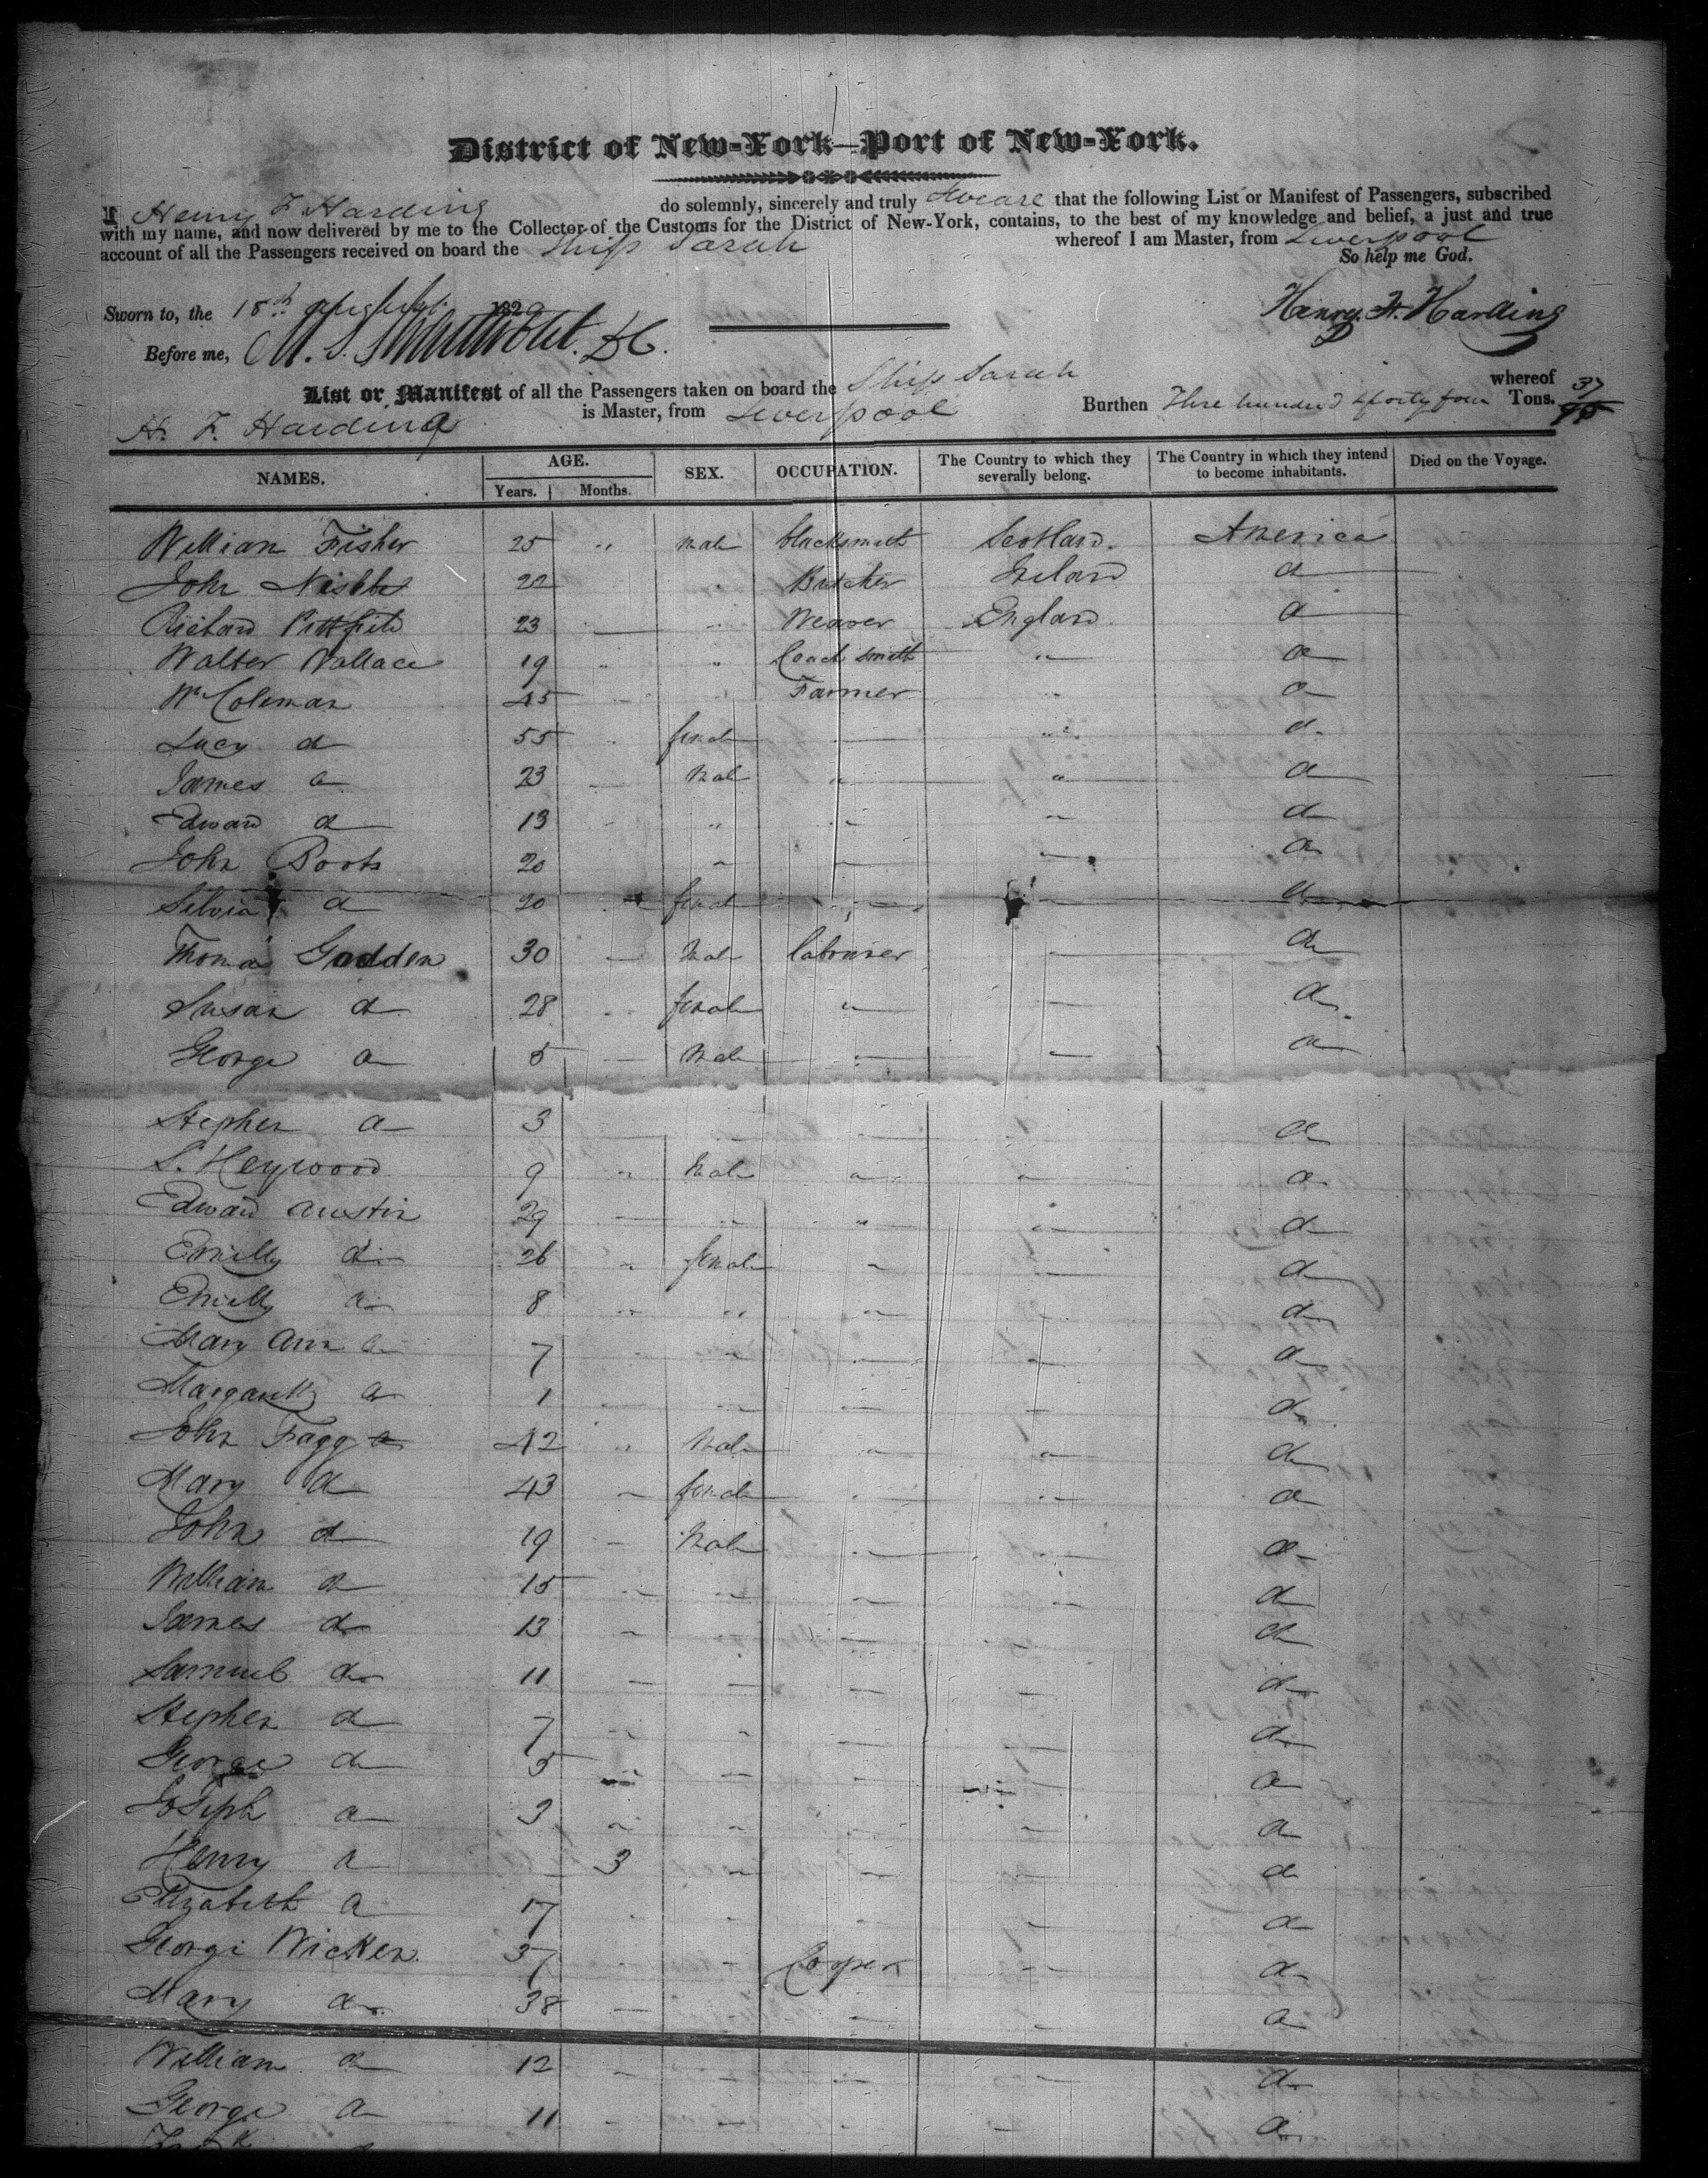 District of New-York—Port of New-York.
I Henry F Harding do solemnly, sincerely and truly Sweare that the following List or Manifest of Passengers, subscribed
with my name, and now delivered by me to the Collector of the Customs for the District of New-York, contains, to the best of my knowledge and belief, a just and true
account of all the Passengers received on board the Ship Sarah whereof I am Master, from Liverpool
So help me God.
Sworn to, the 18th 1829
Henry F. Harding
Before me,
List or Manifest of all the Passengers taken on board the Ship Sarah whereof
H. F. Harding is Master, from Liverpool Burthen Three hundred & forty four 37/95 Tons.
NAMES. AGE. SEX. OCCUPATION. The Country to which they severally belong. The Country in which they intend to become inhabitants. Died on the Voyage.
Years. Months.
William Fisher 25 " Male blacksmith Scotland. America
John 22 " Butcher Ireland d
Richard Pittfield 23 " Weaver England d
Walter Wallace 19 " " Coach smith " d
Wm Coleman 45 " Farmer " d
Lucy d 55 " female " d
James d 23 Male " " d
Edward d 13 " " " d
John Boots 20 " " " d
Silvia d 20 " female " d
Thomas Godden 30 Male labourer d
Susan d 28 " female " d
George d 5 Male d
Stephen d 3 d
S. Heywood 9 " Male " " d
Edward Austin 29 " " " d
Emilly d 26 " female " d
Emilly d 8 " " " d
Mary Ann d 7 " d
Margarett d 1 " d
John Fagg 42 " Male " " d
Mary d 43 " female " " d
John d 19 " Male " " d
William d 15 " " " " d
James d 13 " d
Samuel d 11 " d
Stephen d 7 " " d
George d 5 " " d
Joseph d 3 " " d
Henry d 3 " d
Elizabeth d 17 " d
George Wicken 37 " Cooper " d
Mary d 38 " d
William d 12 " d
George d 11 " d